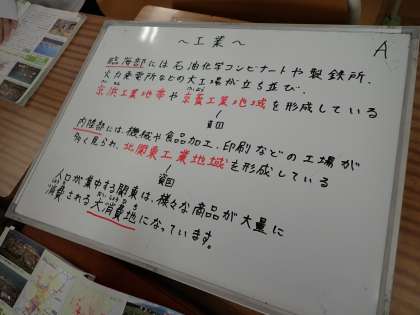 ～工業～
A
臨海部には石油化学コンビナートや製鉄所、
火力発電所などの大工場が立ち並び、
京浜工業地帯や京葉工業地域を形成している
内陸部には、機械や食品加工、印刷などの工場が
多く見られ、北関東工業地域を形成している
人口が集中する関東は、様々な商品が大量に
消費される大消費地になっています。